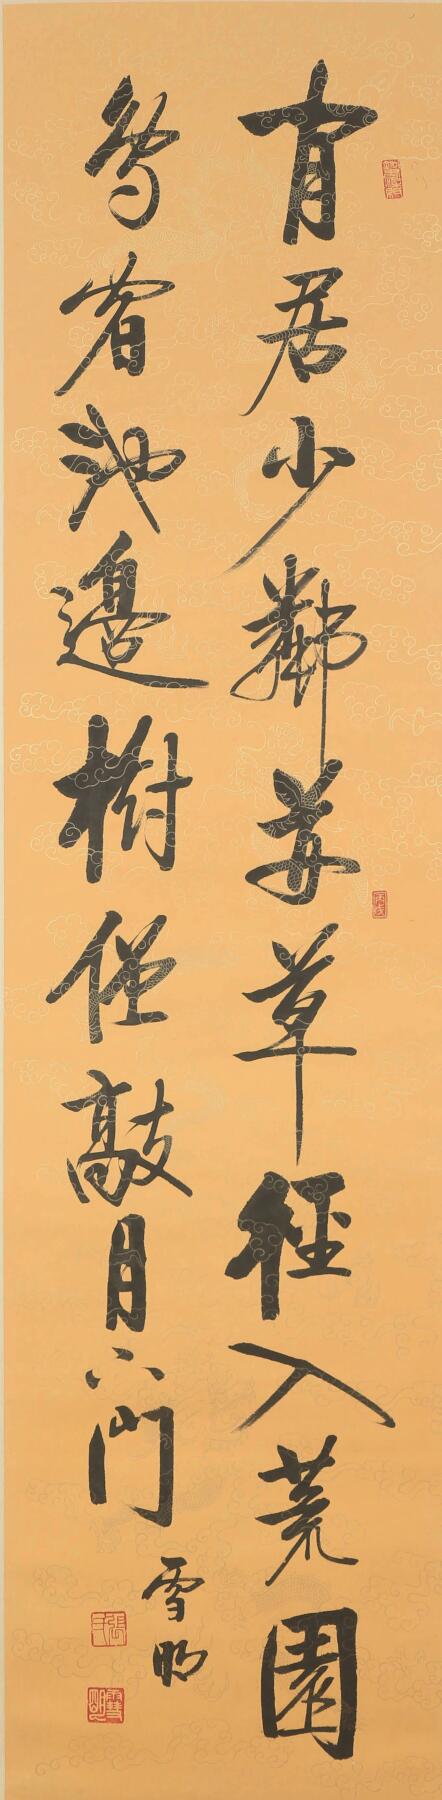 有居少鄰并草徑入荒園
鳥宿池邊樹僧敲月下門
雪明